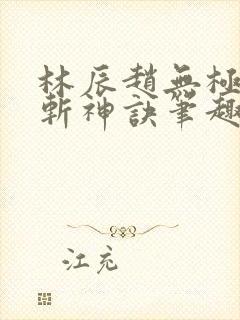 林辰趙無極
斬神訣筆趣
江充